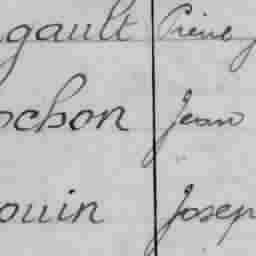 gault Pierre j
ochon Jean
ouin Josep